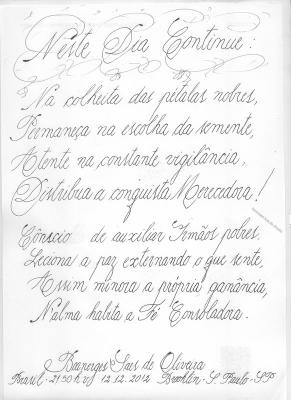 Neste Dia Continue:
Na colheita das pétalas nobres,
Permaneça na escolha da semente,
Atente na constante vigilância,
Distribua a conquista Merecedora!
Cônscio de auxiliar Irmãos pobres,
Leciona a paz externando o que sente,
Assim minora a própria ganância,
N'alma habita a Fé Consoladora.
Saes de Oliveira
Brasil - 21:50 h. 12.12.2012 Brooklin - S. Paulo - SP